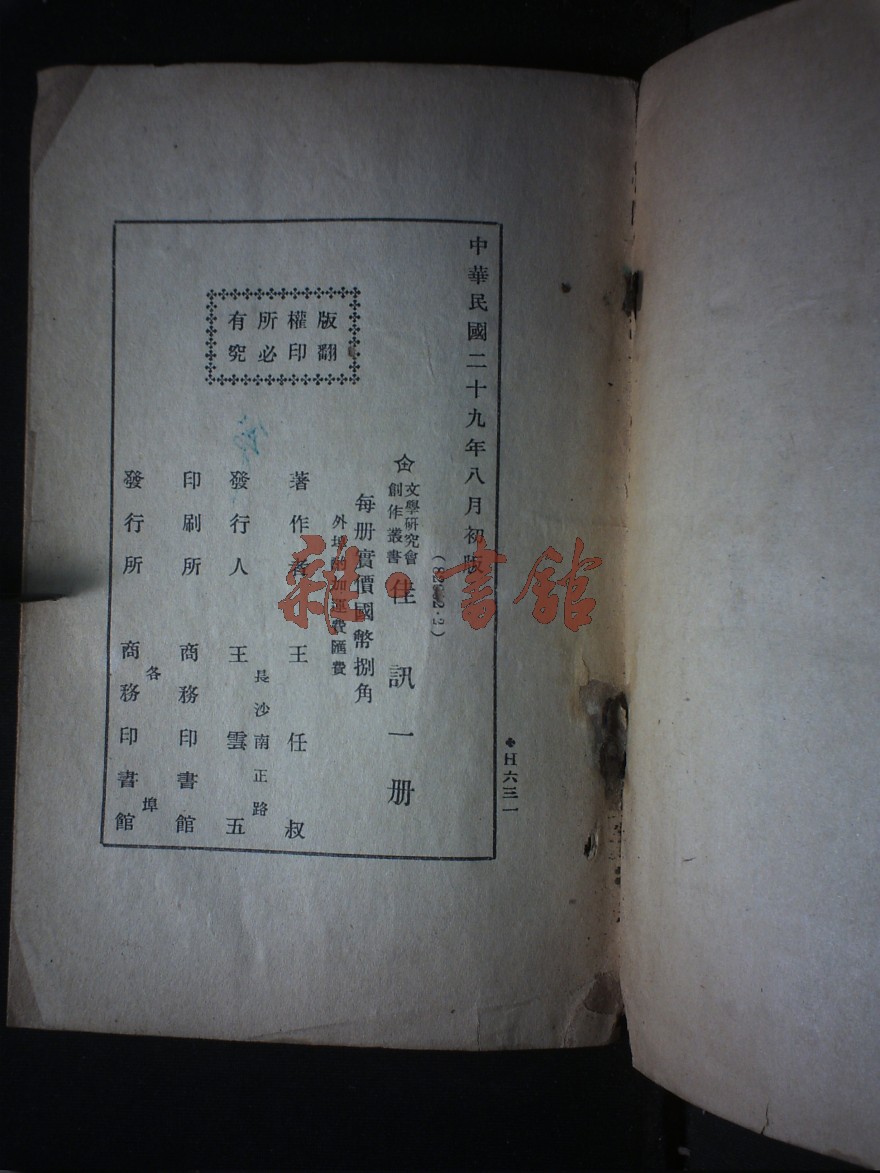 中華民國二十九年八月初版
文學研究會
創作叢書
佳訊一册
每册實價國幣捌角
外埠酌加運費匯費
著作者 王任叔
長沙南正路
發行人 王雲五
印刷所 商務印書館
各埠
發行所 商務印書館
版權所有
翻印必究
H六三一
雜·書館